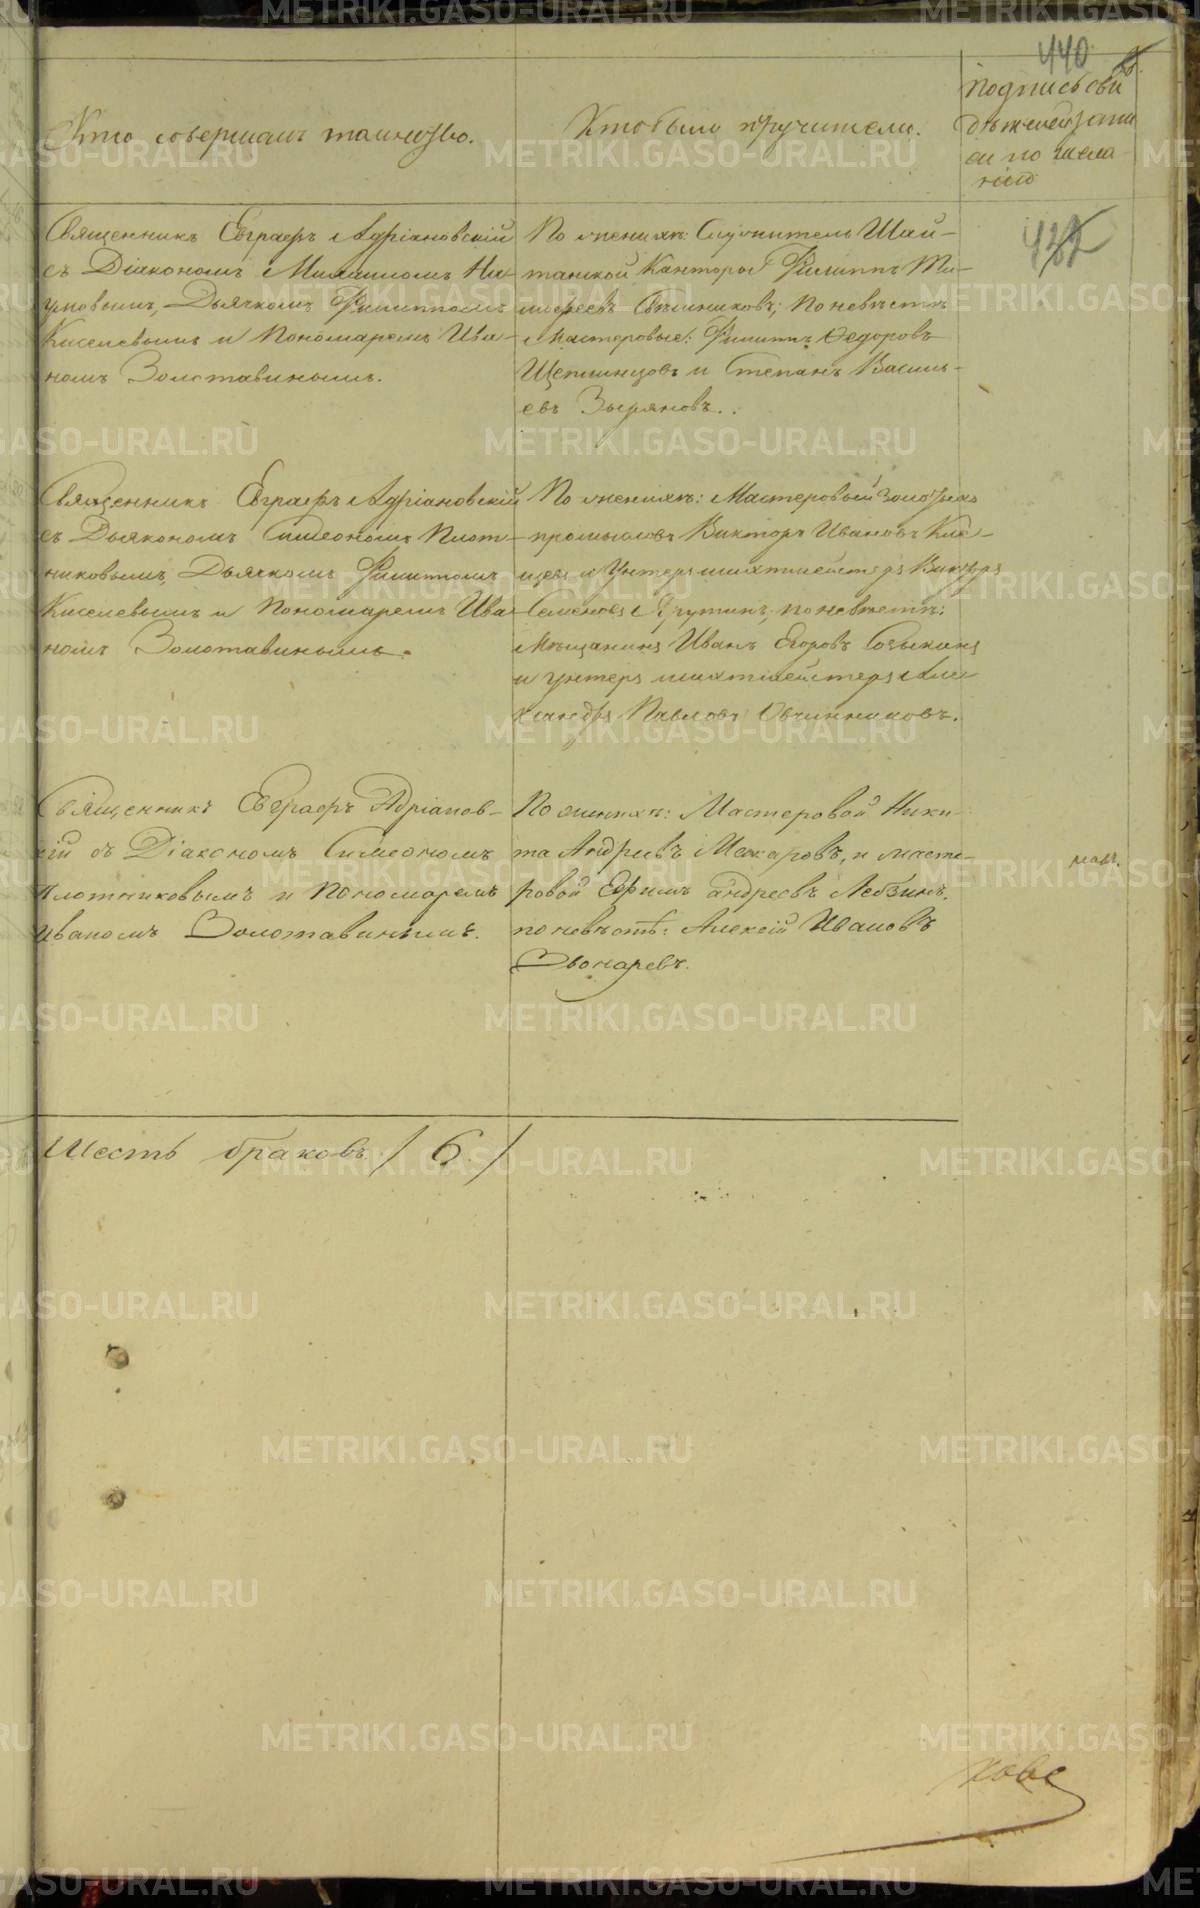 440
Кто совершалъ таинство.
Кто были поручители.
Подпись сви
дѣтелей записи
си по жела
нію
Священникъ Евграфъ Адріановскій
съ Діакономъ Михаиломъ На-
умовымъ, Дьячкомъ Филиппомъ
Киселевымъ и Пономаремъ Ива-
номъ Золотавинымъ.
По женихѣ: Служитель Шай-
танской Канторы Филиппъ Ти-
мофеевъ; По невѣстѣ
Мастеровые: Филипъ Федоровъ
Щепинцовъ и Степанъ Василь-
евъ Зыряновъ.
Священникъ Евграфъ Адріановскій
съ Дьякономъ Симеономъ Плот-
никовымъ, Дьячкомъ Филипомъ
Киселевымъ и Пономаремъ Ива
номъ Золотавинымъ.
По женихѣ: Мастеровый золотыхъ
промысловъ Викторъ Ивановъ
и Унтеръ шихтмейстеръ Викторъ
Семеновъ Ягутинъ, по невѣстѣ:
Мѣщанинъ Иванъ Егоровъ
и унтеръ шихтмейстеръ Але
ксандръ Павловъ Овчинниковъ.
Священникъ Евграфъ Адріанов-
кій съ Діакономъ Симеономъ
Плотниковымъ и Пономаремъ
Иваномъ Золотавинымъ.
По женихѣ: Мастеровой Ники-
та Андреевъ Макаровъ, и масте-
ровой Ефимъ Андреевъ Лебзинъ.
по невѣстѣ: Алексій Ивановъ
Звонаревъ.
Шесть браковъ / 6 /